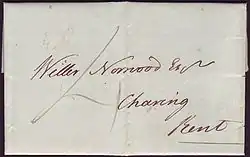 Willes Norwood Esqr
Charing
Kent